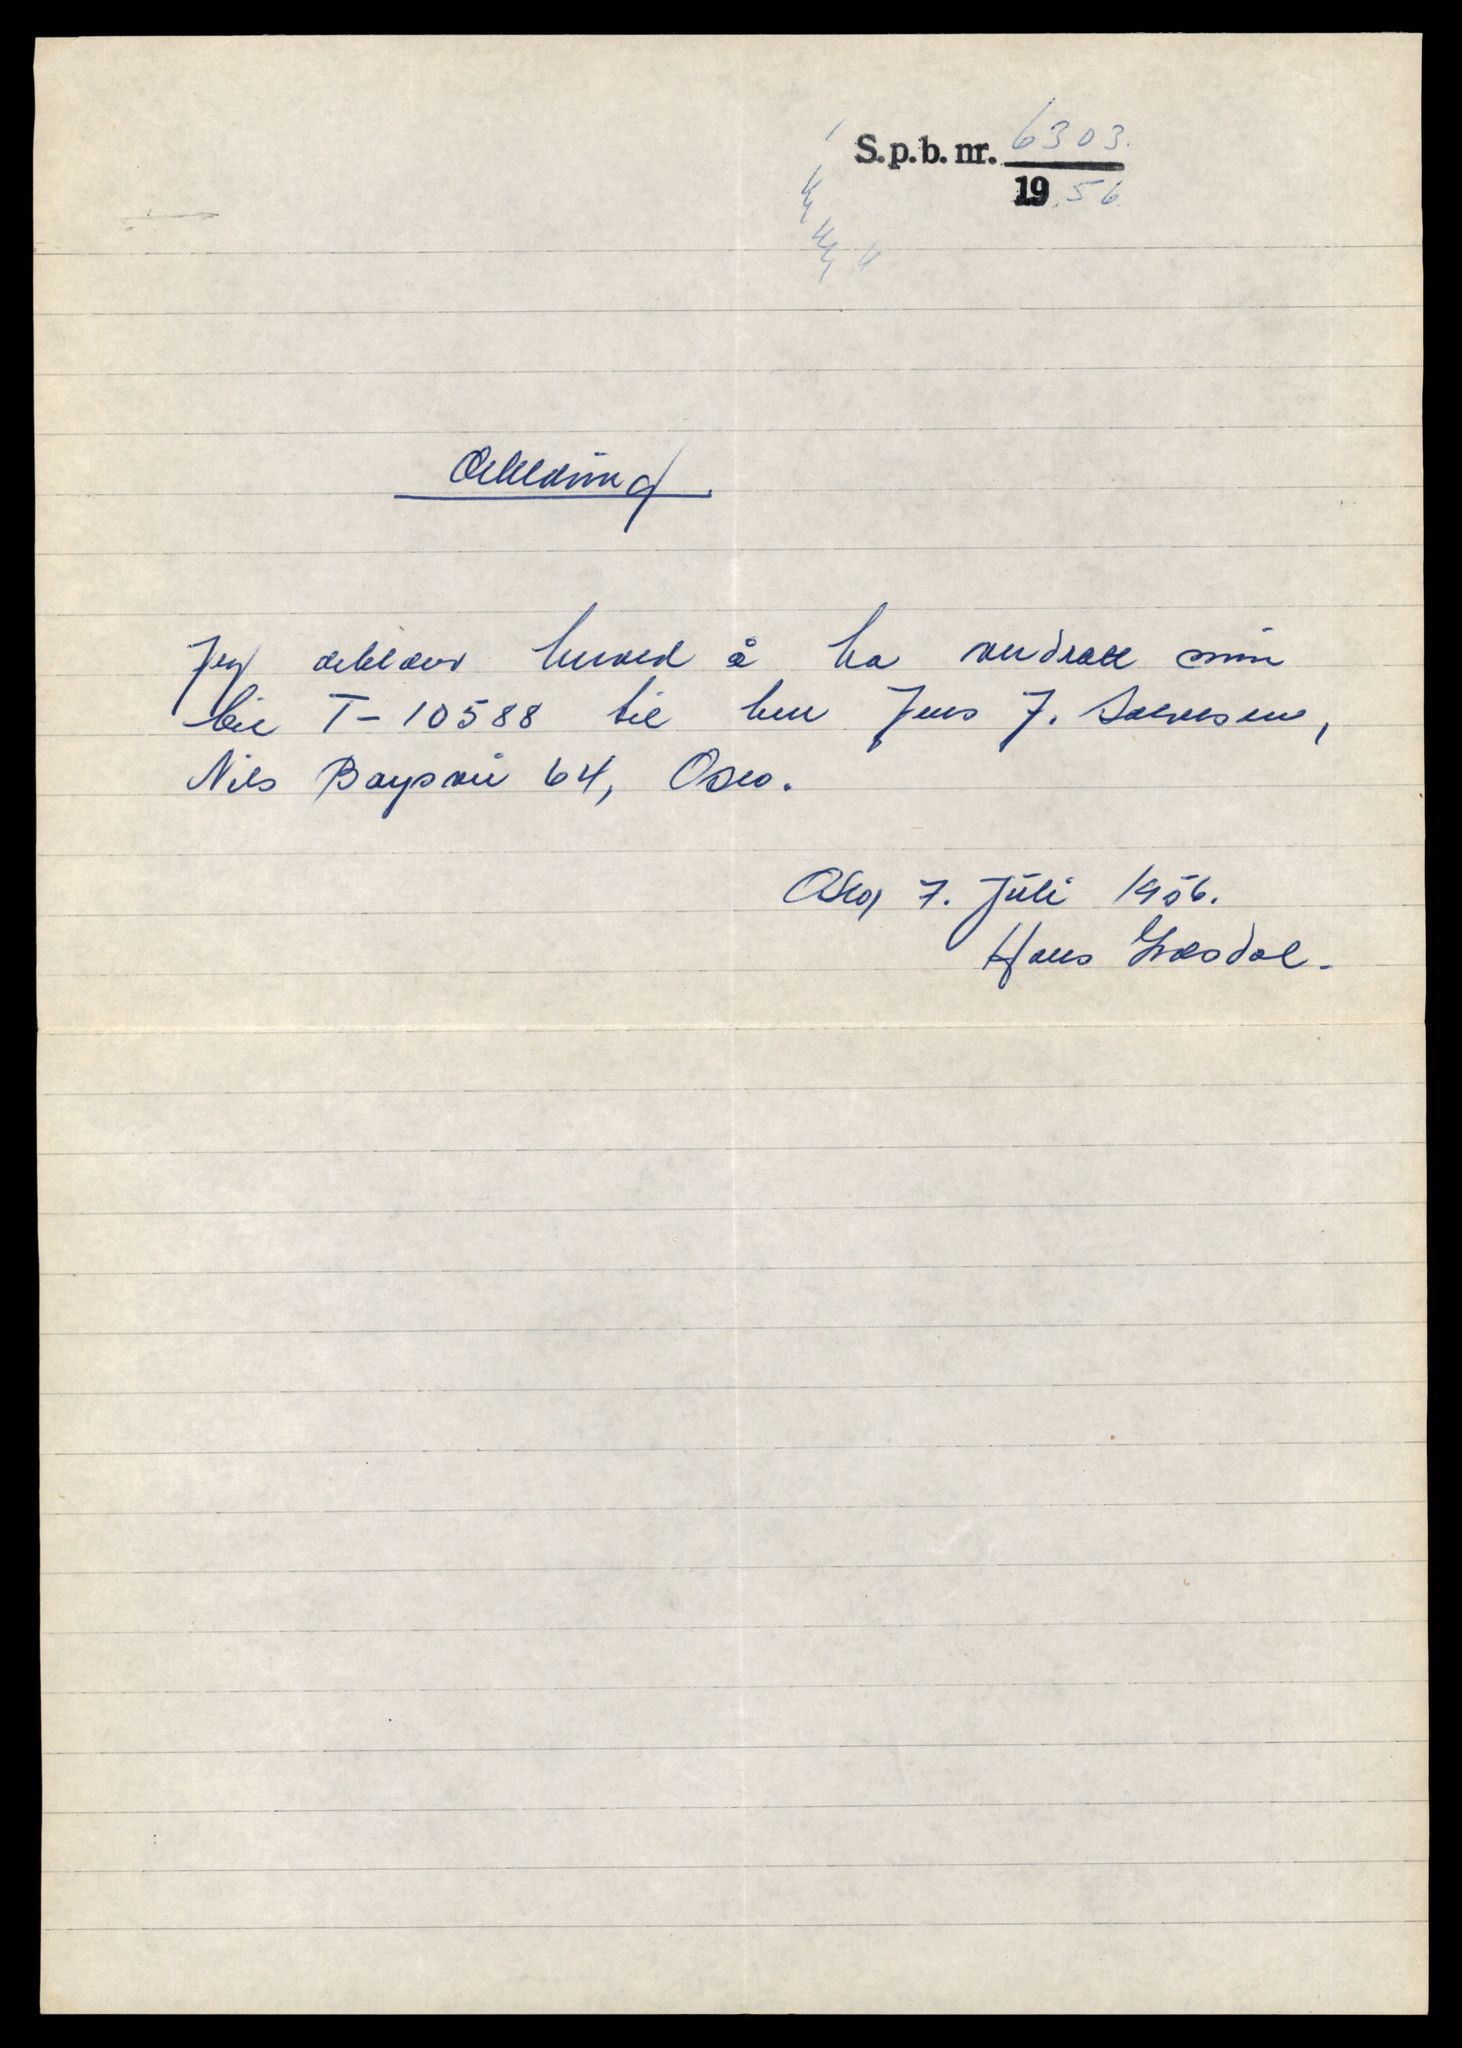 S.p.b. nr. 6303.
19 56.
Erklæring
Jeg erklærer herved å ha overdratt min
bil T-10588 til herr Jens J. Salvesen,
Nils Baysvei 64, Oslo.
Oslo, 7. Juli 1956.
Hans Græsdal.